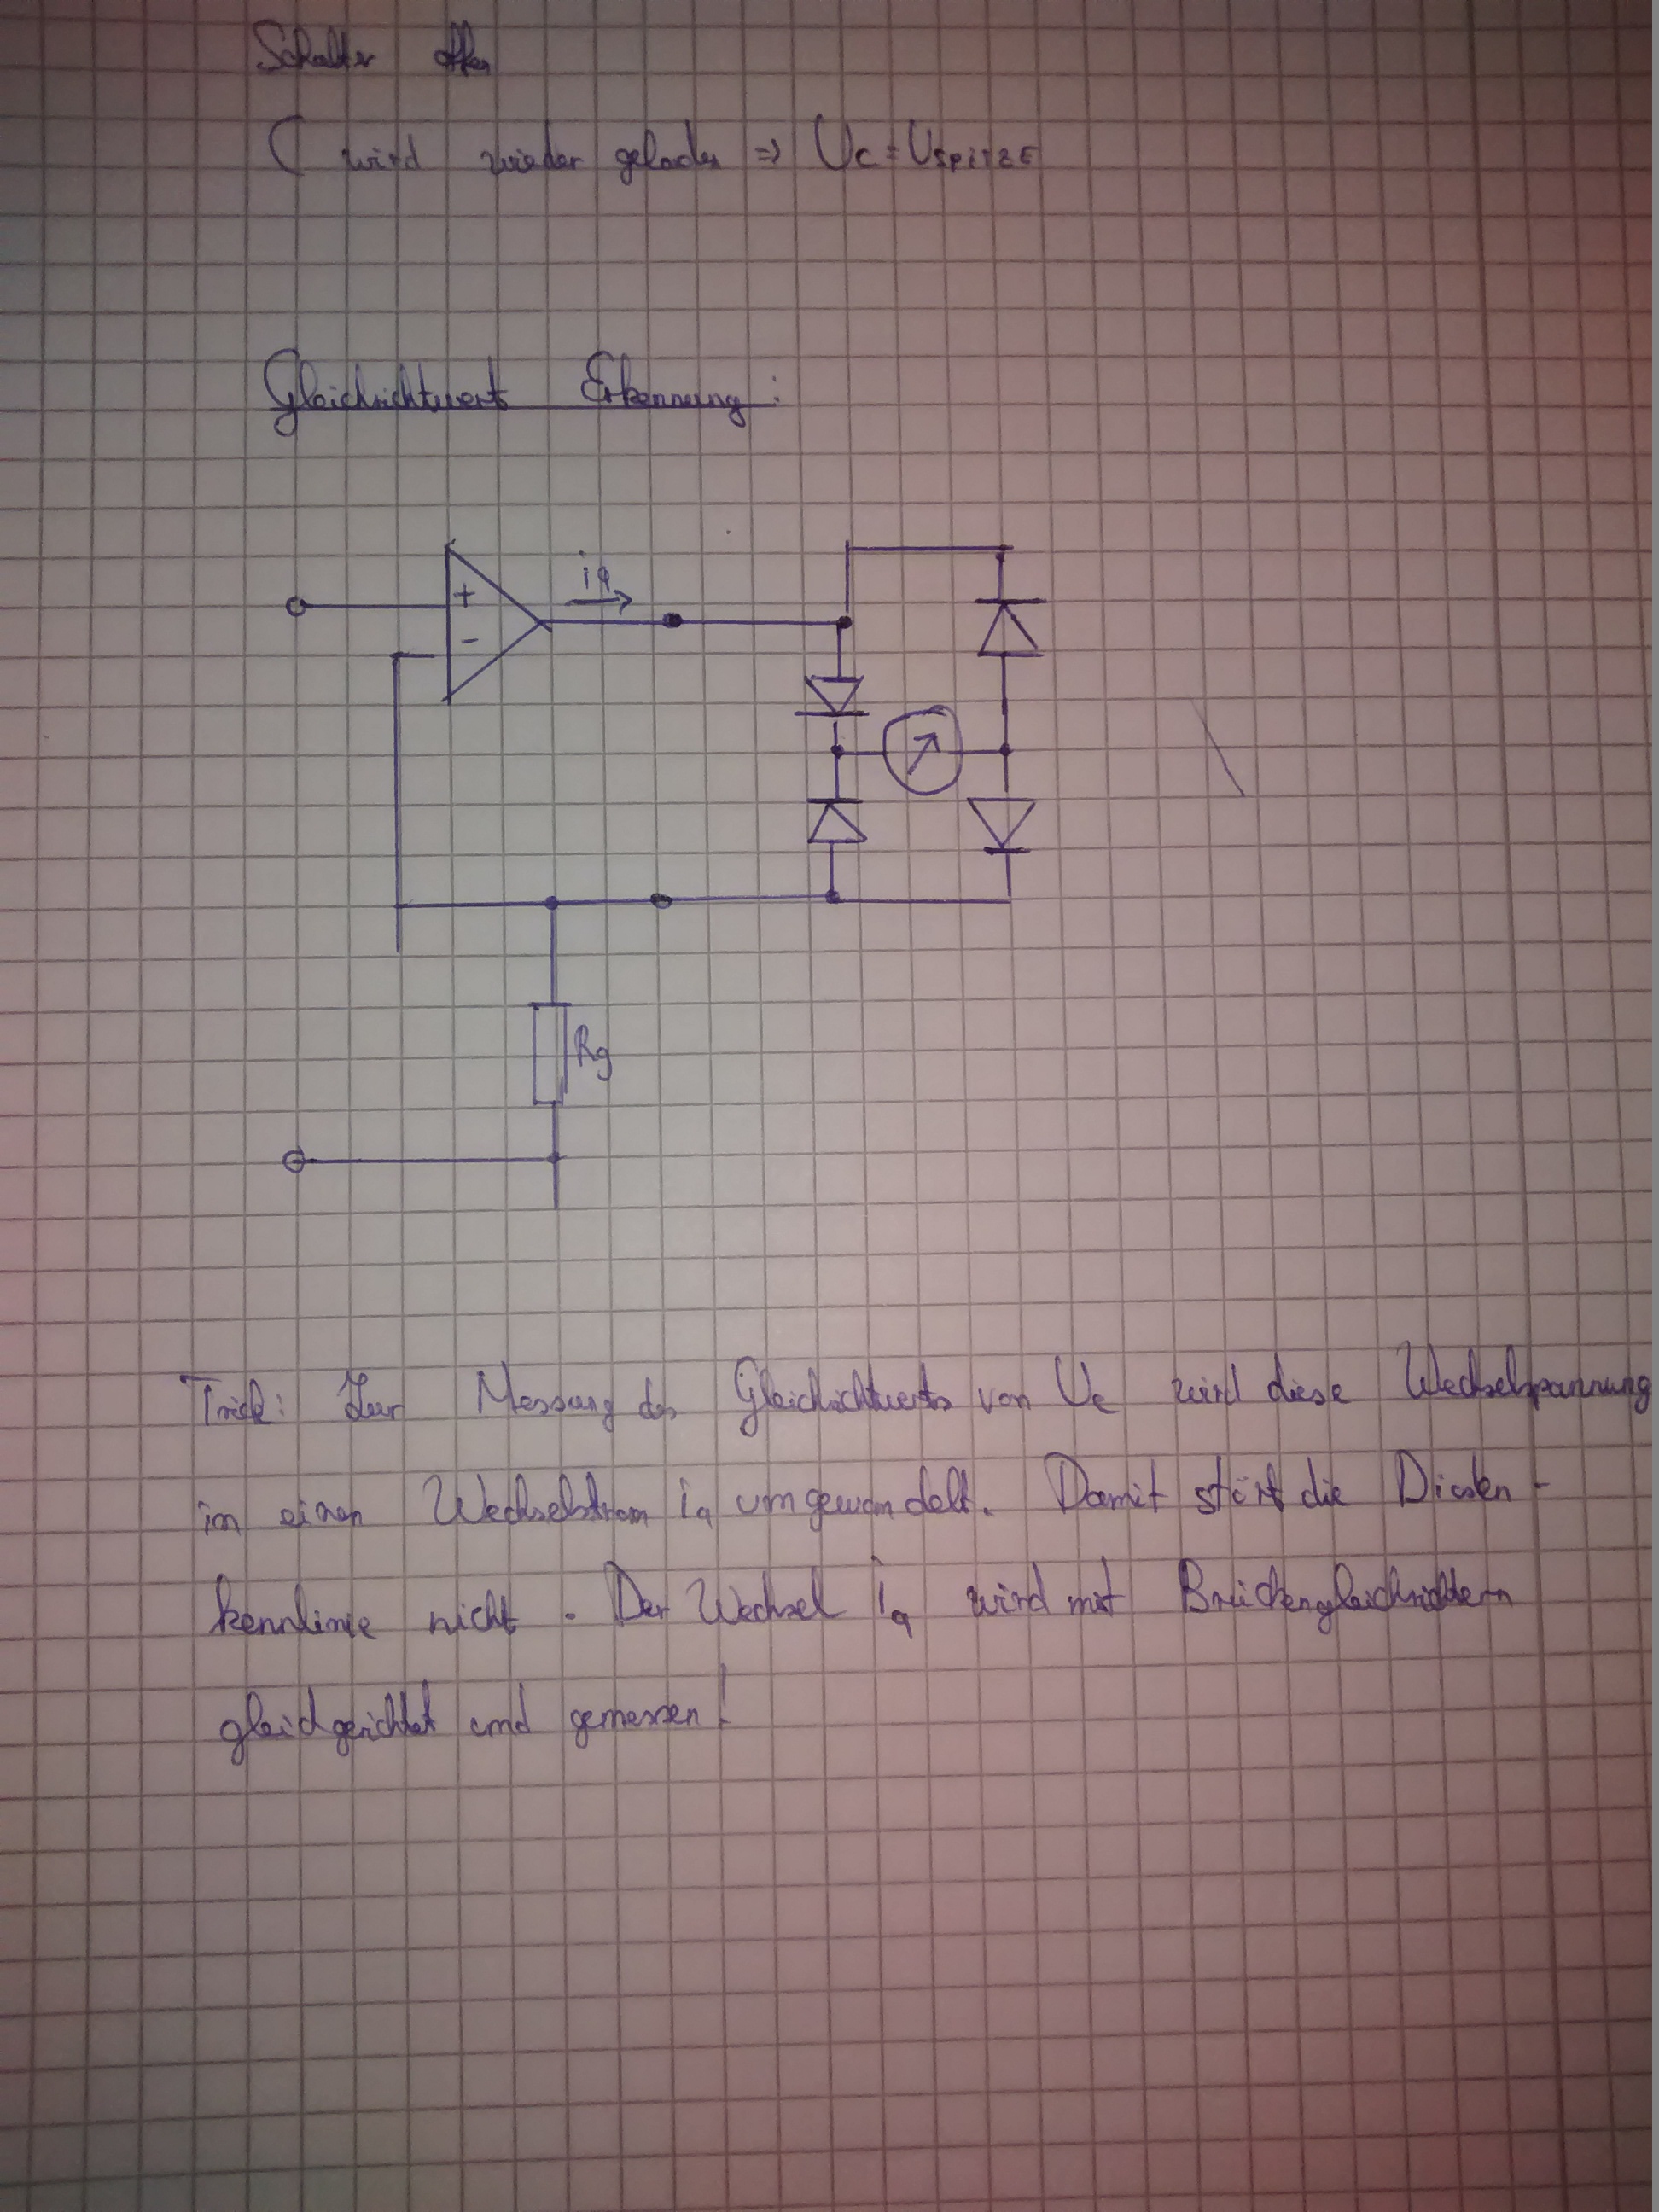 Schalter offen
C wird wieder geladen => Uc = USPITZE
Gleichrichtwert Erkennung:
+
iq
-
Rg
Trick: Zur Messung des Gleichrichtwerts von Ue wird diese Wechselspannung
in einen Wechselstrom iq umgewandelt. Damit stört die Dioden-
kennlinie nicht. Der Wechsel iq wird mit Brückengleichrichtern
gleichgerichtet und gemessen!